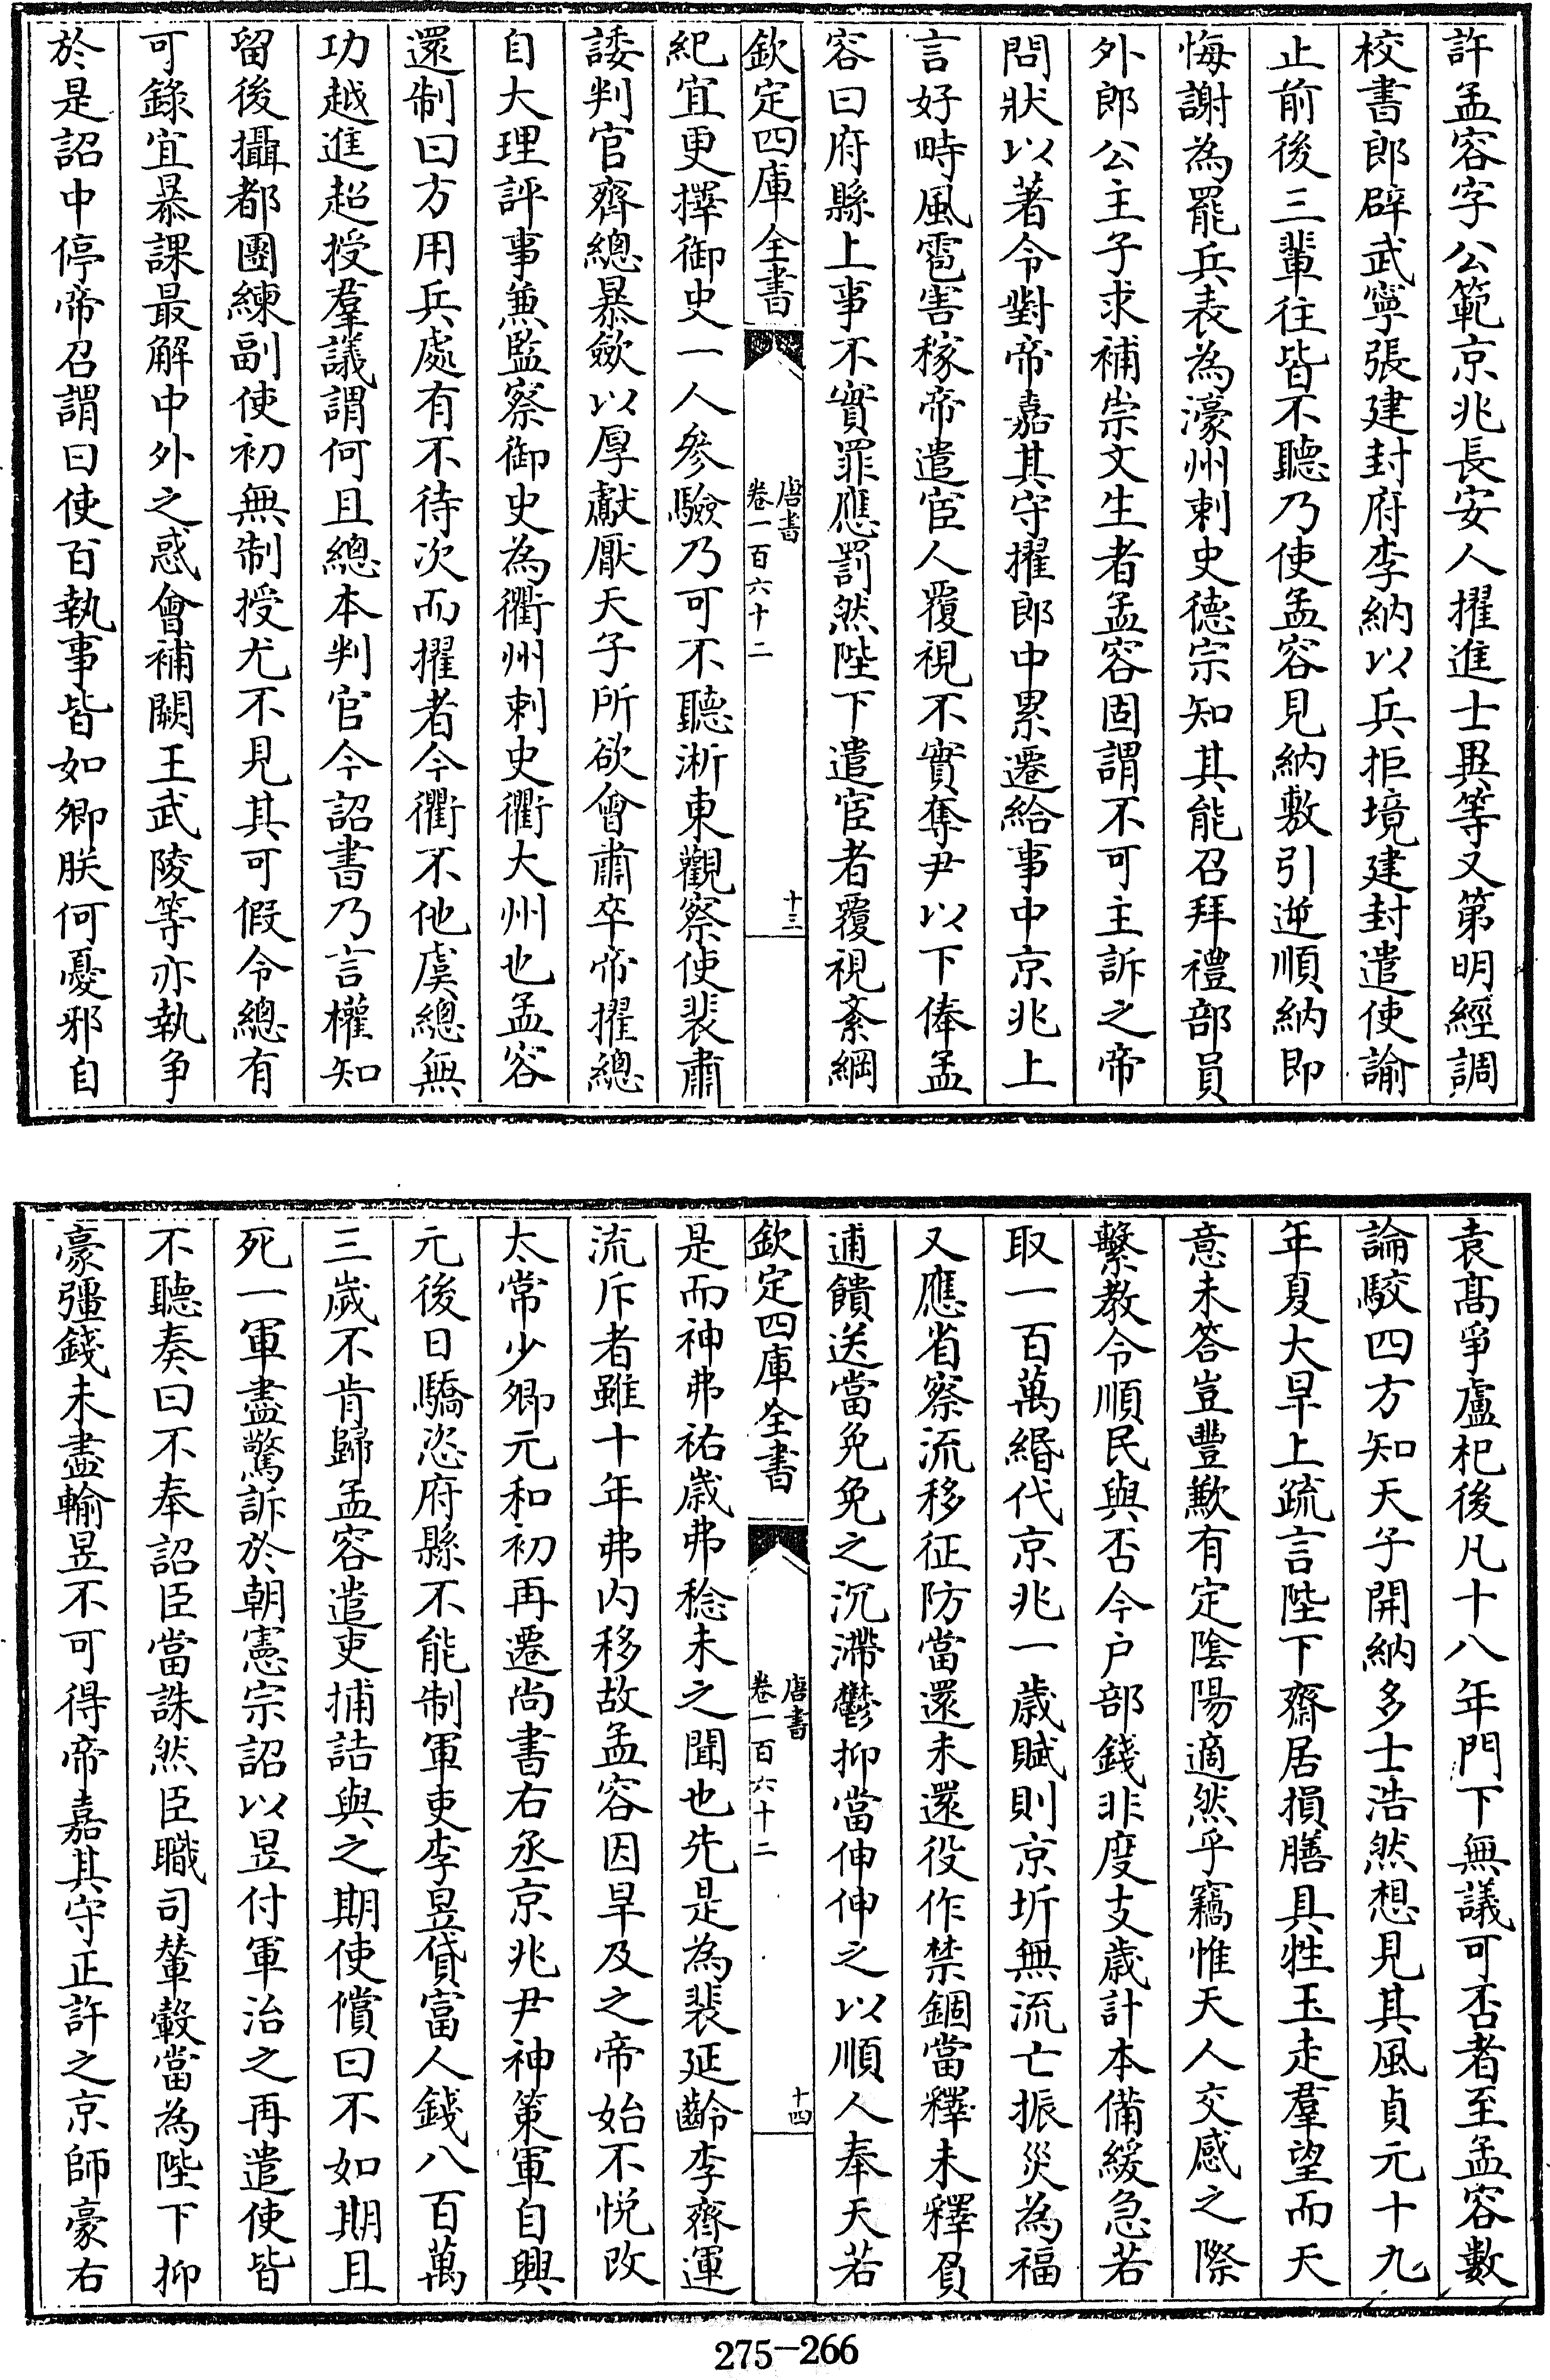 許孟容字公範京兆長安人擢進士異等又第明經調
校書郎辟武寧張建封府李納以兵拒境建封遣使諭
止前後三輩往皆不聽乃使孟容見納敷引逆順納即
悔謝為罷兵表為濠州刺史德宗知其能召拜禮部員
外郎公主子求補崇文生者孟容固謂不可主訴之帝
問狀以著令對帝嘉其守擢郎中累遷給事中京兆上
言好畤風雹害稼帝遣宦人覆視不實奪尹以下俸孟
容曰府縣上事不實罪應罰然陛下遣宦者覆視紊綱
欽定四庫全書
唐書
卷一百六十二
十三
紀宜更擇御史一人參驗乃可不聽浙東觀察使裴肅
諉判官齊總暴斂以厚獻厭天子所欲會肅卒帝擢總
自大理評事兼監察御史為衢州刺史衢大州也孟容
還制曰方用兵處有不待次而擢者今衢不他虞總無
功越進超授羣議謂何且總本判官今詔書乃言權知
留後攝都團練副使初無制授尤不見其可假令總有
可錄宜暴課最解中外之惑會補闕王武陵等亦執争
於是詔中停帝召謂曰使百執事皆如卿朕何憂邪自
袁高爭盧杞後凡十八年門下無議可否者至孟容數
論駮四方知天子開納多士浩然想見其風貞元十九
年夏大旱上疏言陛下齋居損膳具牲玉走羣望而天
意未答豈豐歉有定陰陽適然乎竊惟天人交感之際
繫教令順民與否今户部錢非度支歲計本備緩急若
取一百萬緡代京兆一歲賦則京圻無流亡振災為福
又應省察流移征防當還未還役作禁錮當釋未釋負
逋饋送當免免之沉滯鬱抑當伸伸之以順人奉天若
欽定四庫全書
唐書
卷一百六十二
十四
是而神弗祐歲弗稔未之聞也先是為裴延齡李齊運
流斥者雖十年弗内移故孟容因旱及之帝始不悦改
太常少卿元和初再遷尚書右丞京兆尹神策軍自興
元後日驕恣府縣不能制軍吏李昱貸富人錢八百萬
三歲不肯歸孟容遣吏捕詰與之期使償曰不如期且
死一軍盡驚訴於朝憲宗詔以昱付軍治之再遣使皆
不聽奏曰不奉詔臣當誅然臣職司輦轂當為陛下抑
豪彊錢未盡輸昱不可得帝嘉其守正許之京師豪右
275-266